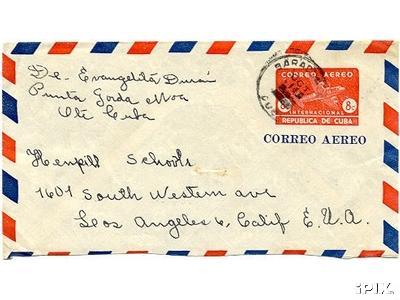 De - Evangelita Durán
Punta Gorda Moa
Ote Cuba
BARACOA
CORREO AEREO
8c
INTERNACIONAL
REPUBLICA DE CUBA
CORREO AEREO
Hempill Schools
1601 South Western ave
Leos Angeles 6, Calif E.U.A.
iPIX